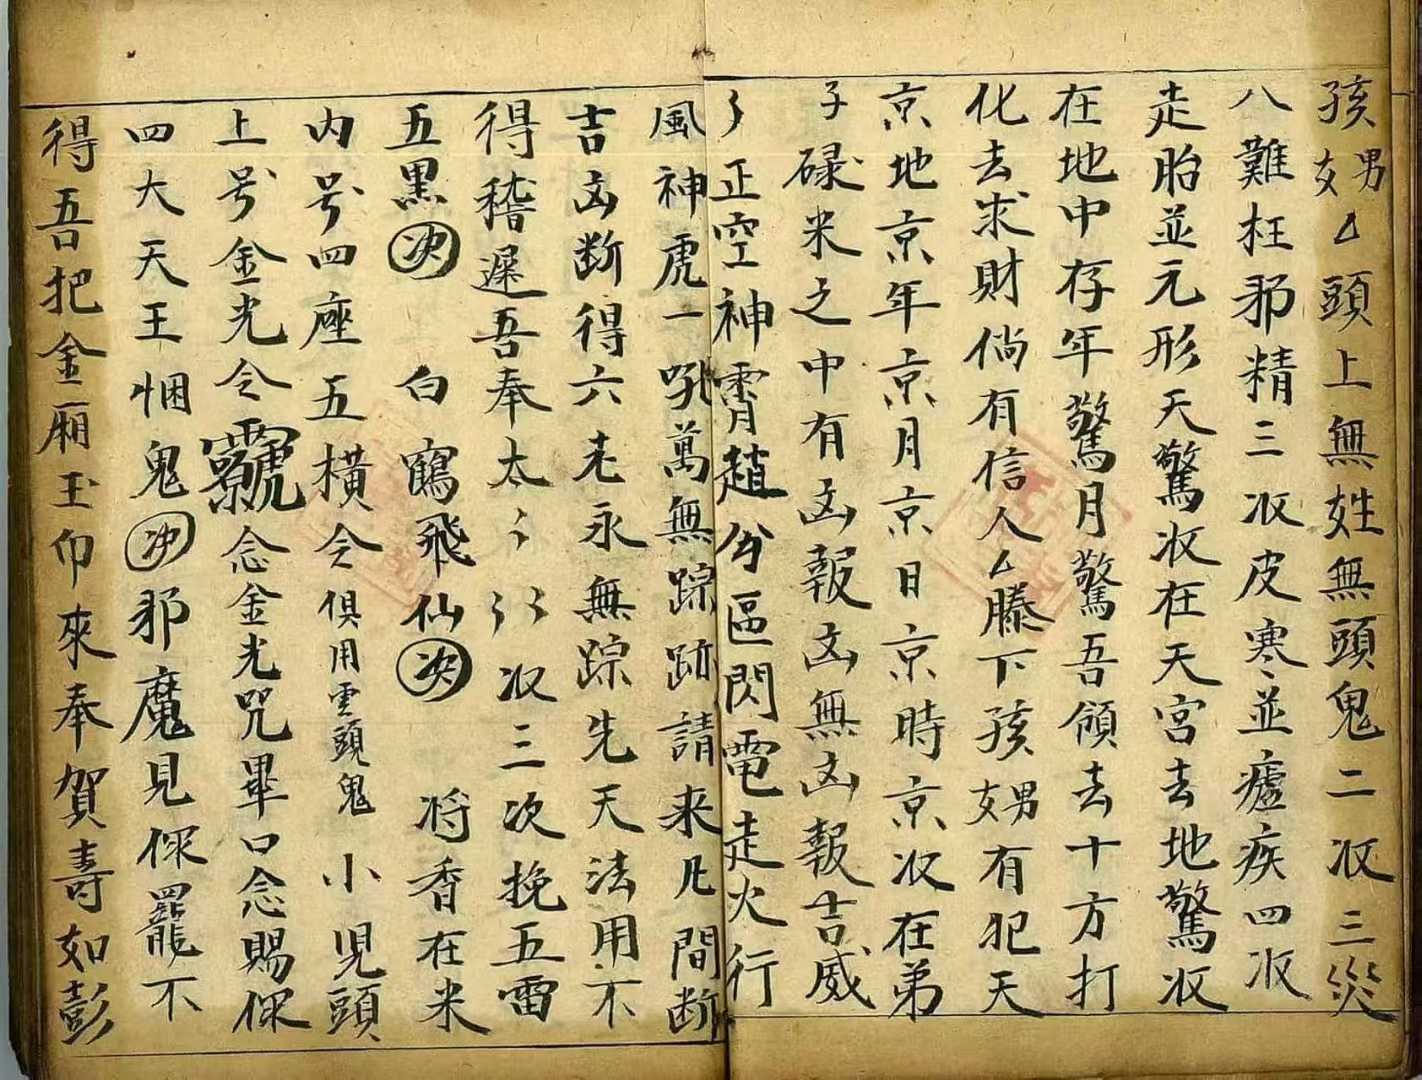 孩男女厶頭上無姓無頭鬼二收三災
八難枉邪精三收皮寒並瘧疾四收
走胎並元形天驚收在天宮去地驚收
在地中存年驚月驚吾領去十方打
化去求財倘有信人厶滕下孩男女有犯天
京地京年京月京日京時京收在弟
子碌米之中有凶報凶無凶報吉威
〻正空神霄趙公區閃電走火行
風神虎一吼萬無踪跡請来凡間断
吉凶断得六老永無踪先天法用不
得稽遲吾奉太〻〻〻收三次挽五雷
五黑决 白鶴飛仙决 将香在米
内号四座五横令俱用雲頭鬼 小児頭
上号金光令 念金光咒畢口念賜保
四大天王悃鬼决邪魔見保羅不
得吾把金廂玉印來奉賀壽如彭